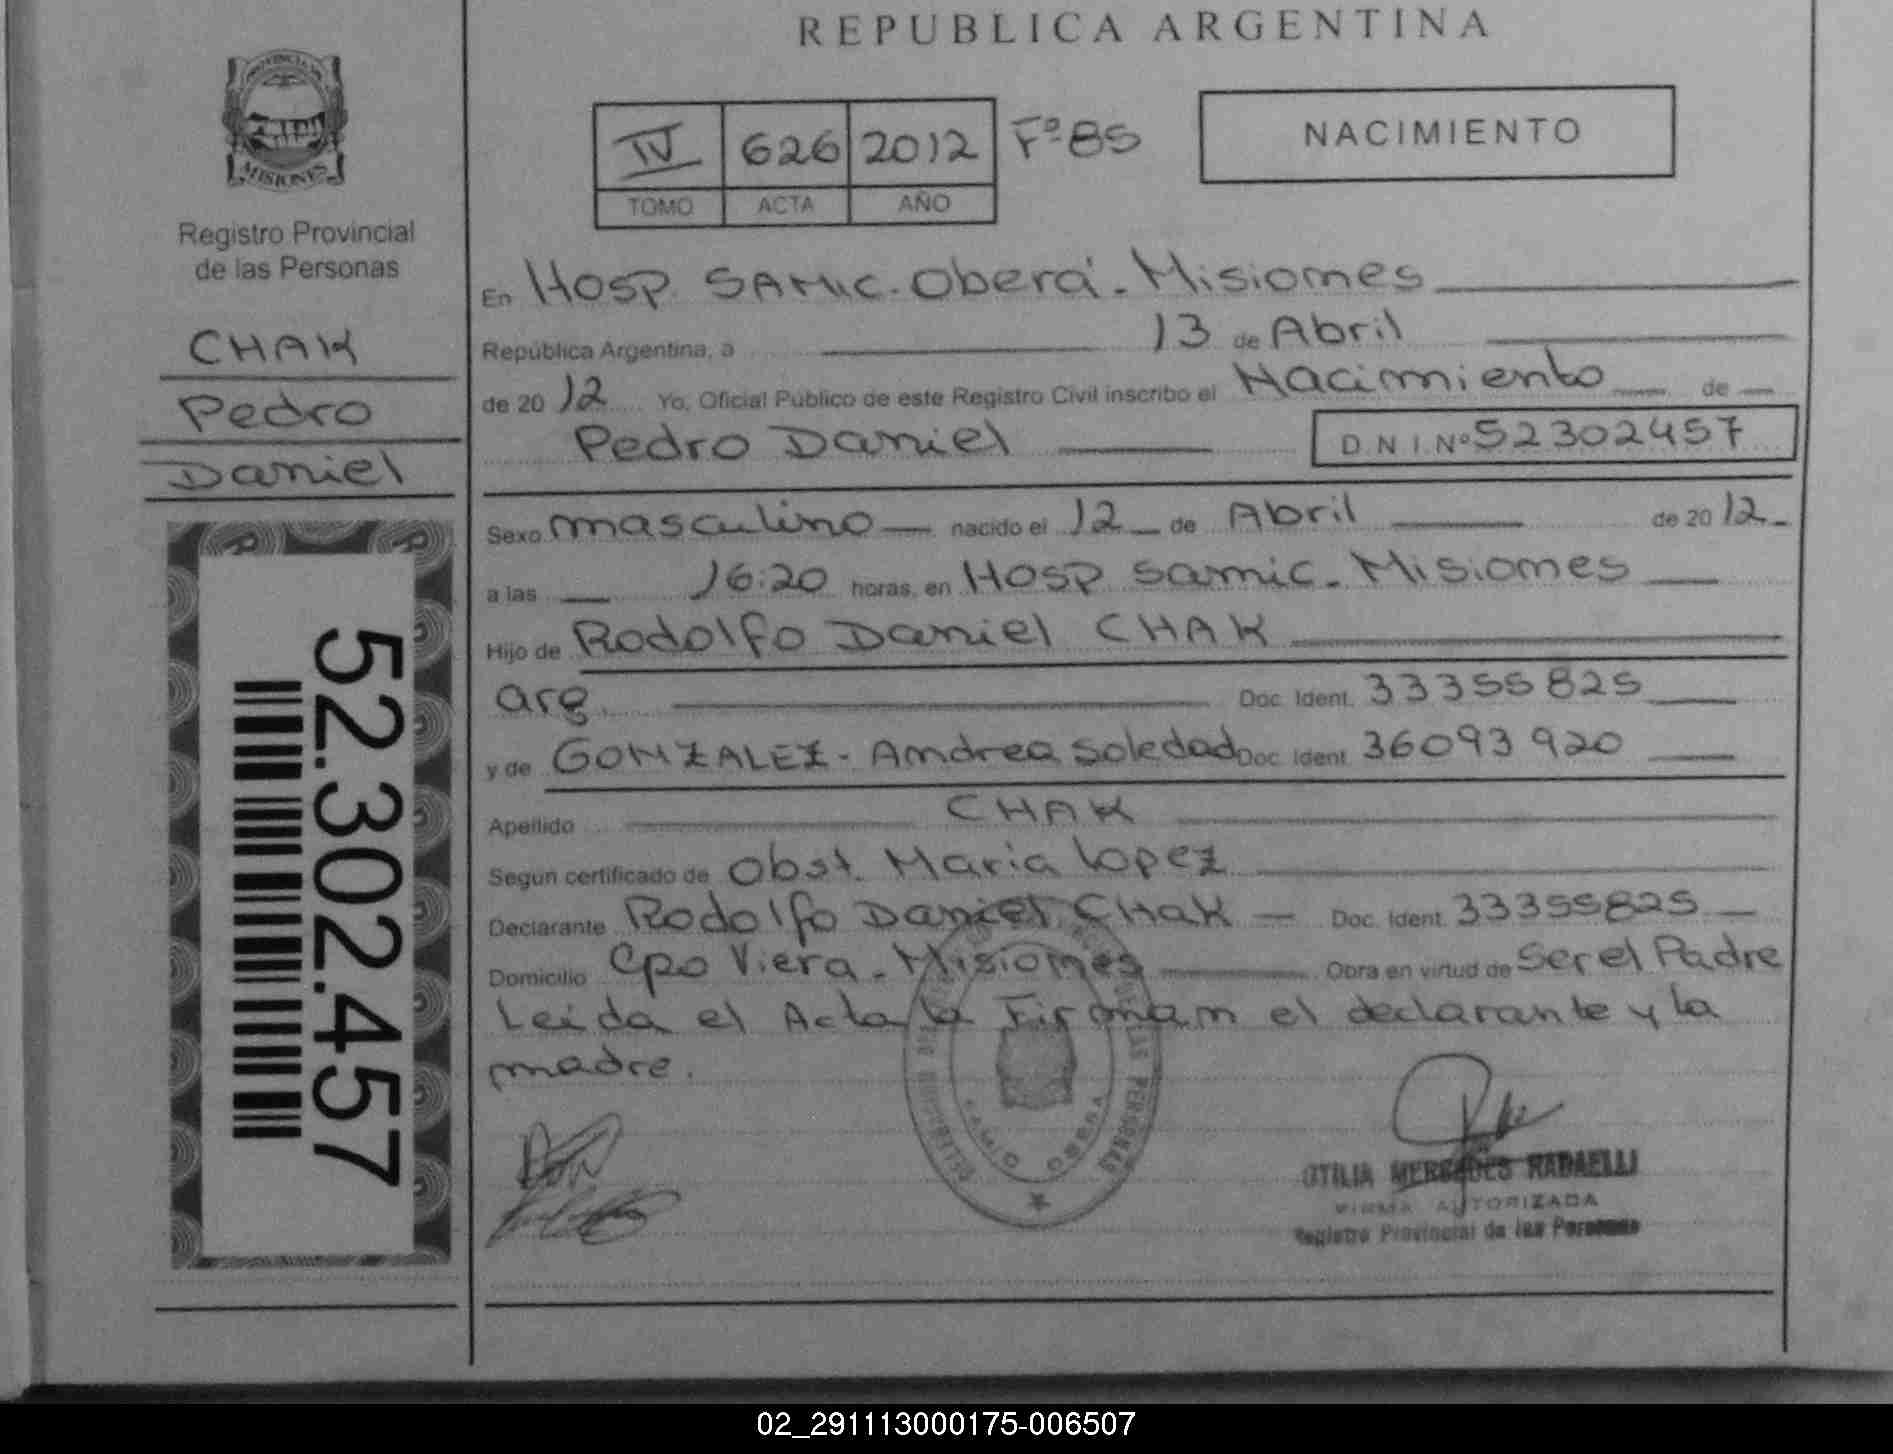 REPUBLICA ARGENTINA
PROVINCIA DE
MISIONES
Registro Provincial
de las Personas
CHAK
Pedro
Daniel
52.302.457
IV 626 2012 Fº 85
TOMO ACTA AÑO
NACIMIENTO
En Hosp. SAMIC. Oberá. Misiones
República Argentina, a 13 de Abril
de 2012 Yo, Oficial Público de este Registro Civil inscribo el Nacimiento de
Pedro Daniel D.N.I.Nº 52302457
Sexo masculino nacido el 12 de Abril de 2012
a las 16:20 horas, en Hosp samic. Misiones
Hijo de Rodolfo Daniel CHAK
arg. Doc. Ident. 33355825
y de GONZALEZ - Andrea Soledad Doc. Ident. 36093920
Apellido CHAK
Segun certificado de Obst. Maria Lopez
Declarante Rodolfo Daniel Chak Doc. Ident. 33355825
Domicilio Cpo Viera. Misiones Obra en virtud de Ser el Padre
Leida el Acta la Firman el declarante y la
madre.
SAMIC OBERA
LAS PERSONAS
OTILIA MERCEDES RADAELLI
FIRMA AUTORIZADA
Registro Provincial de las Personas
02_291113000175-006507